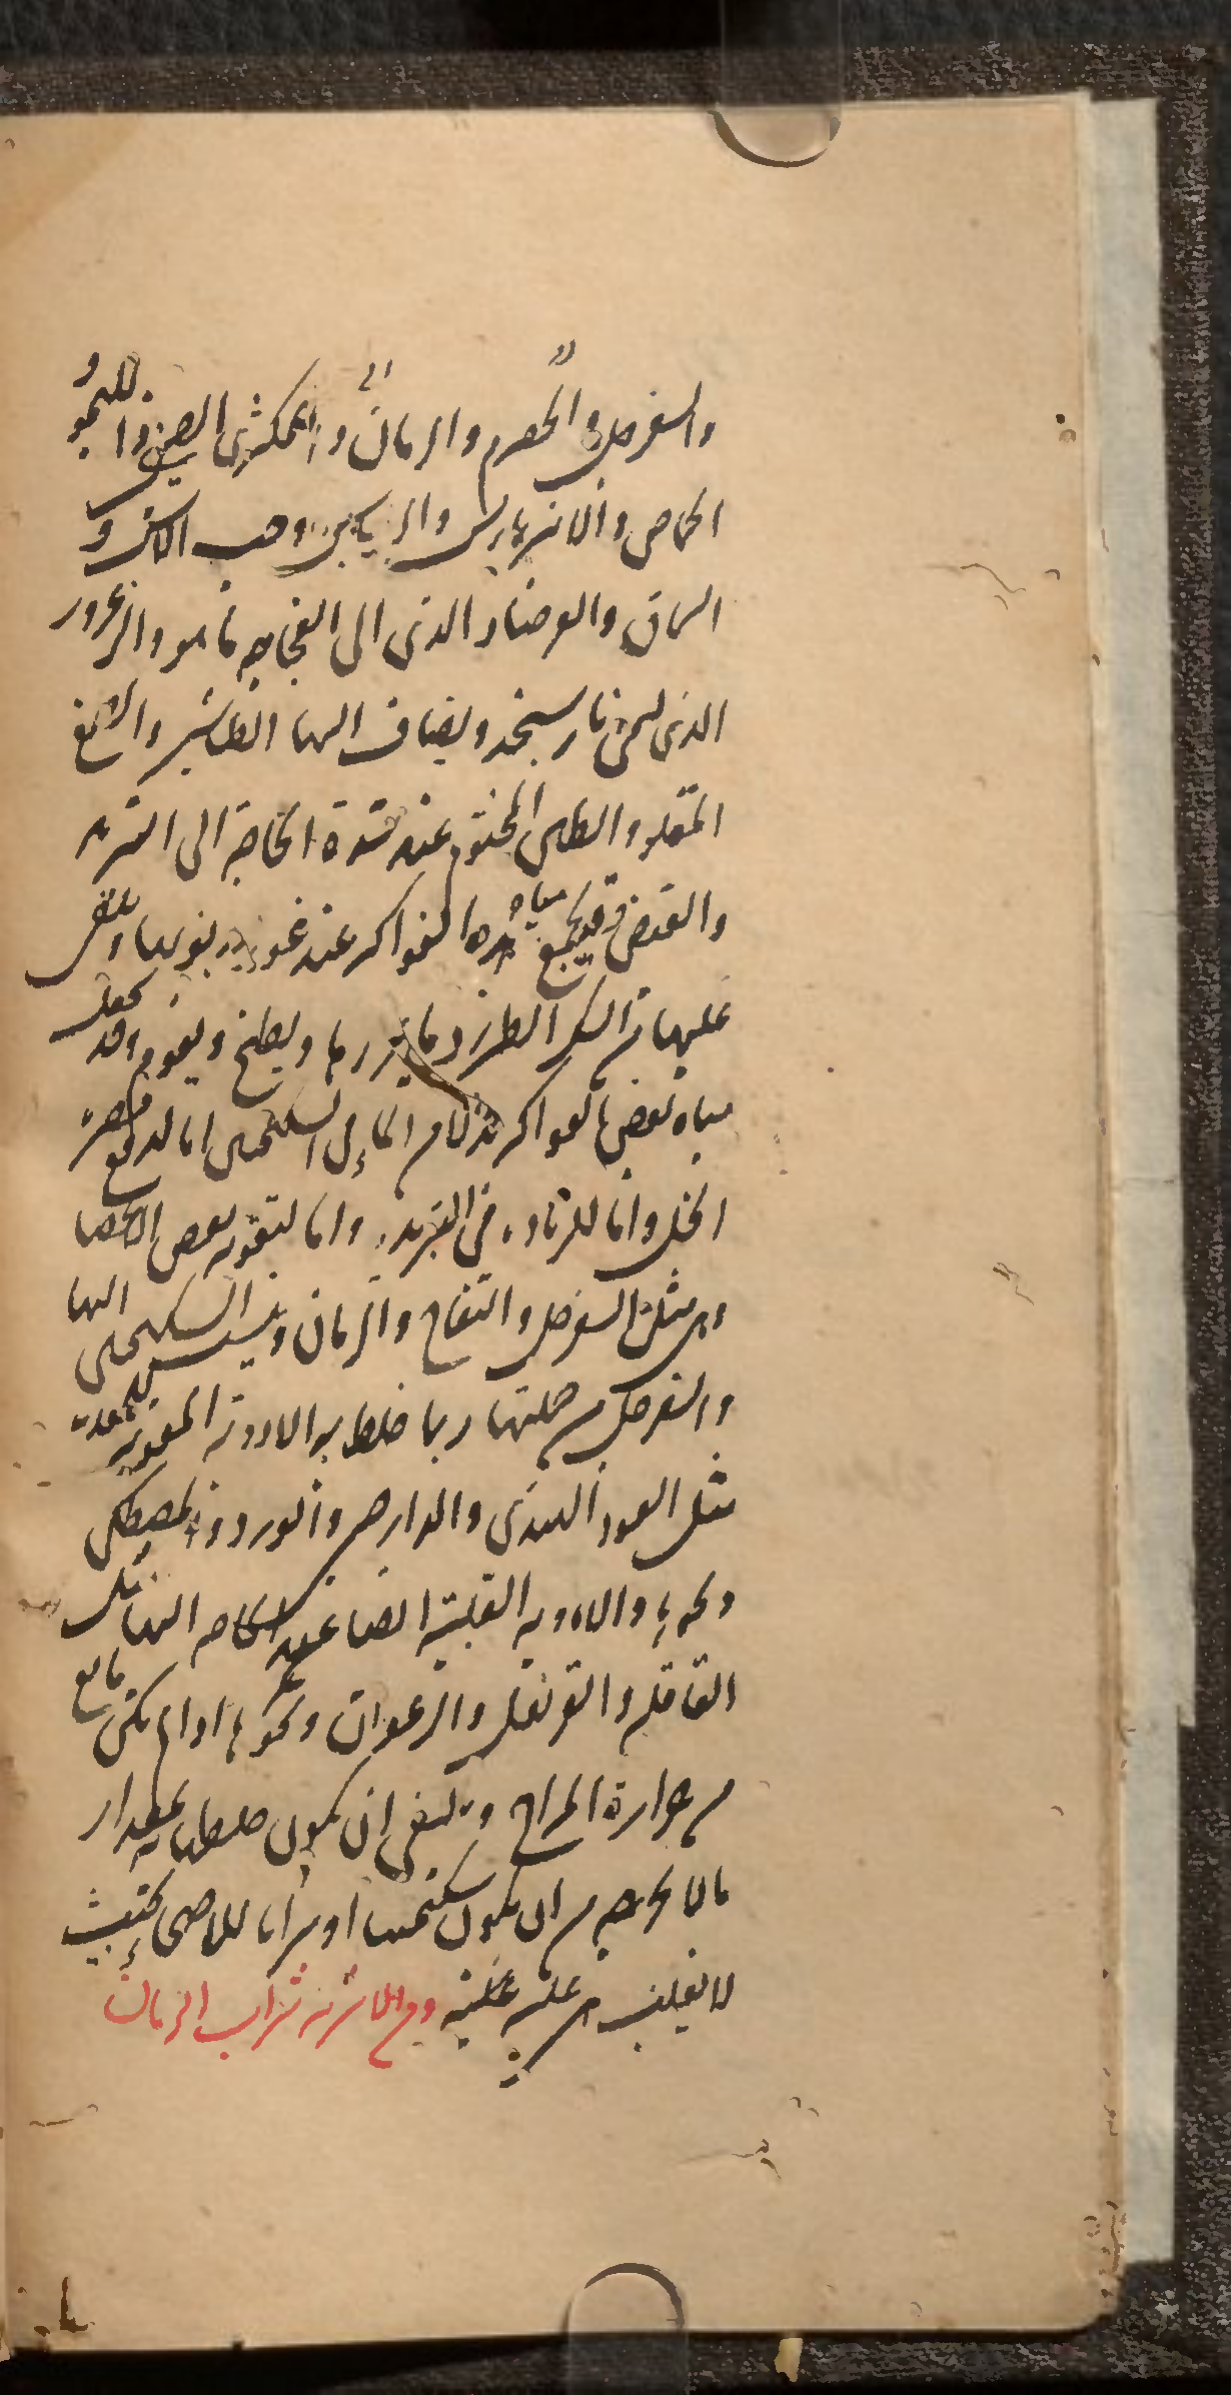 والسفرجل والحصرم والرمان والكمثرى الصيني والليمو و
الحماض والانبرباريس والريباس وحب الاس و
السماق والعرصاد الذى الى الفجاجة ما هو والزعرور
الذى يسمى نارسنجد ويضاف اليها الطباشير والصمغ
المقلو والطين المختوم عند شدة الحاجة الى التبريد
والقبض وقد يجمع مياه هذه الفواكه عند ويلقى
عليها من السكر الطبرزد ما ويطبخ ويقوم وقد يجعل
مياه بعض الفواكه السكنجبين اما لدفع مضرة
الخل واما للزيادة فى التبريد واما لتقوية بعض الاحشا
وهى مثل السفرجل والتفاح والرمان وينسب السكنجبين اليها
والسفرجل من جملتها ربما خلط به الادوية المقوية للمعدة
مثل العود الهندى والدارصينى والورد والمصطكى
ونحوها والادوية القلبية ايضا عند الحاجة اليها مثل
القاقلة والقرنفل والزعفران ونحوها اذا لم يكن مانع
من حرارة المزاج وينبغى ان يكون خلطها بمقدار
ما لا يخرجه من ان يكون سكنجبينا او شرابا للاصحا بحيث
لا يغلب عليه غلبة ومن الاشربة شراب الرمان